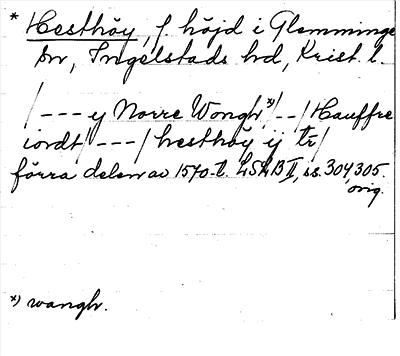 * Hesthöy, f. höjd i Glemminge
sn, Ingelstads hd, Krist. l.
/--- y Norre Wongh *)/--/Hauffre
iordt/---/hesthöy ij tr/
förra delen av 1570-t. LSLB II, ss. 304, 305.
orig.
*) wangh.